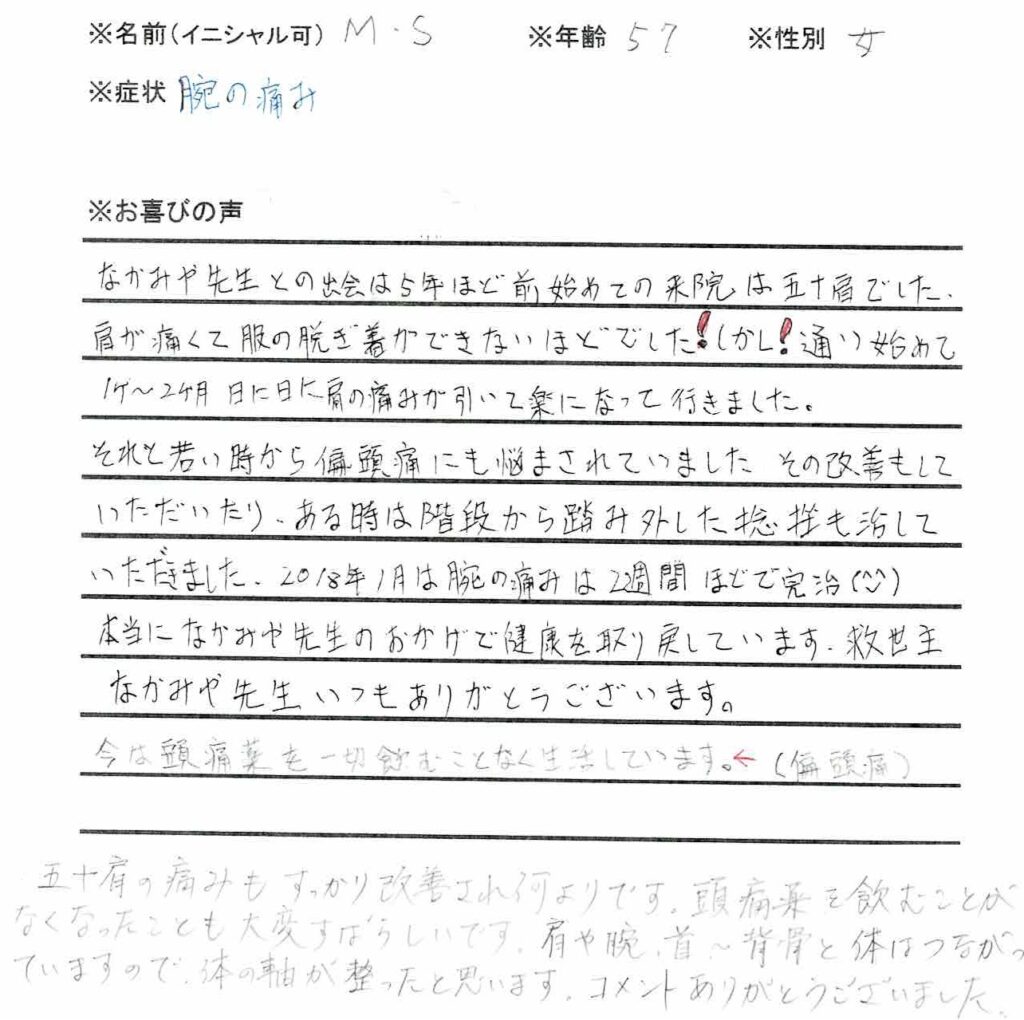 ※名前(イニシャル可) M・S ※年齢 57 ※性別 女
※症状 腕の痛み
※お喜びの声
なかみや先生との出会は5年ほど前、始めての来院は五十肩でした、
肩が痛くて服の脱ぎ着ができないほどでした!しかし!通い始めて
1ヶ~2ヶ月 日に日に肩の痛みが引いて楽になって行きました。
それと若い時から偏頭痛にも悩まされていました その改善もして
いただいたり、ある時は階段から踏み外した捻挫も治して
いただきました、2018年1月は腕の痛みは2週間ほどで完治(^^)
本当になかみや先生のおかげで健康を取り戻しています、救世主
なかみや先生いつもありがとうございます。
今は頭痛薬を一切飲むことなく生活しています。←(偏頭痛)
五十肩の痛みもすっかり改善され何よりです。頭痛薬を飲むことが
なくなったことも大変すばらしいです。肩や腕、首~背骨と体はつながっ
ていますので、体の軸が整ったと思います。コメントありがとうございました。